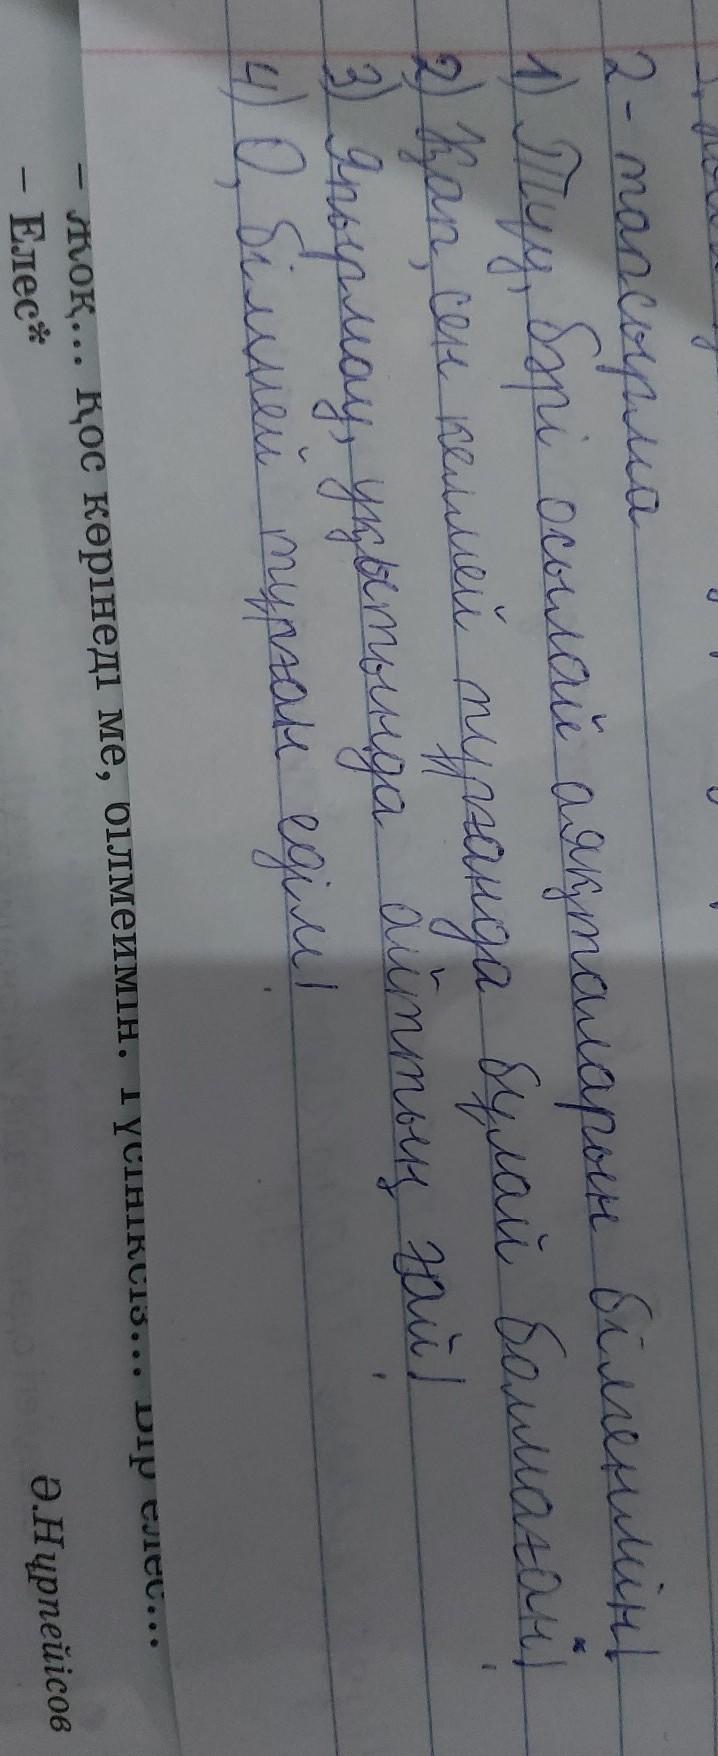 2-тапсырма
1) Туу, бәрі осылай аяқталарын білгенмін!
2) Қап, сен келмей тұрғанда бұлай болмаған!
3) Япырмау, уқытында айттың ғой!
4) О, білмей тұрған едім!
– Жоқ... Қос көрінеді ме, білмеймін. Түсініксіз... Бір елес...
– Елес*
Ә.Нұрпейісов